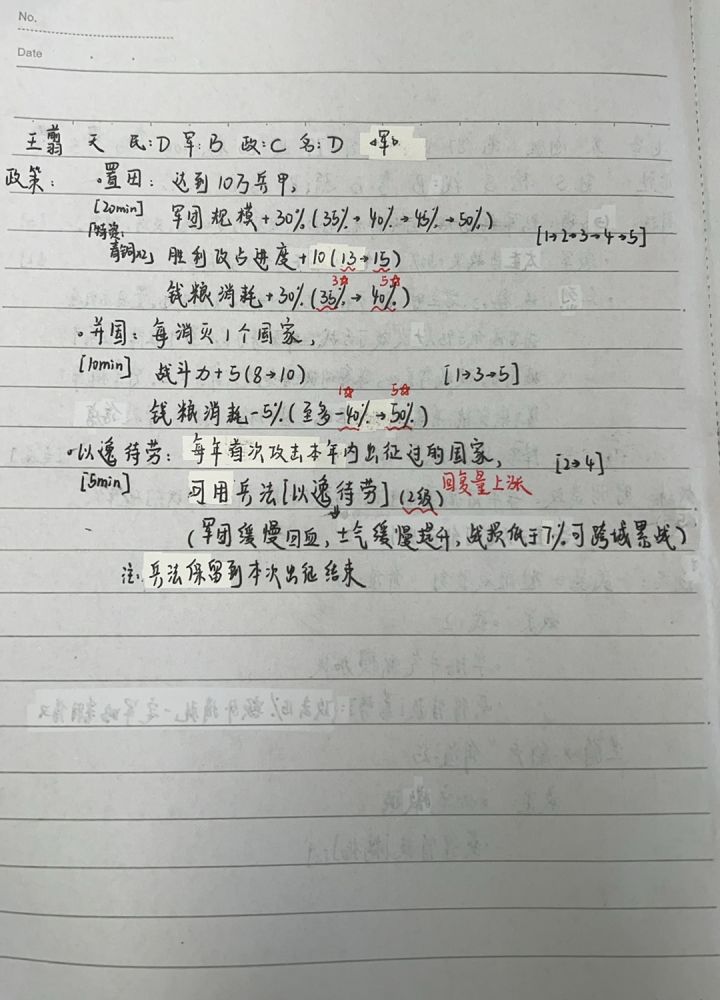 No.
Date
王翦 天 民:D 军:B 政:C 名:D 军
政策: 。置田: 达到10万兵甲,
[20min] 军团规模+30%(35%→40%→45%→50%) [1→2→3→4→5]
青铜x2」 胜利攻占进度+10(13→15)
3☆ 5☆
钱粮消耗+30%(35%→40%)
。并国: 每消灭1个国家,
[10min] 战斗力+5(8→10) [1→3→5]
1☆ 5☆
钱粮消耗-5%(至多-40%→50%)
。以逸待劳: 每年首次攻击本年内出征过的国家, [2→4]
[5min] 可用兵法[以逸待劳](2级) 回复量上涨
(军团缓慢回血,士气缓慢提升,战损低于7%可跨域累战)
注:兵法保留到本次出征结束